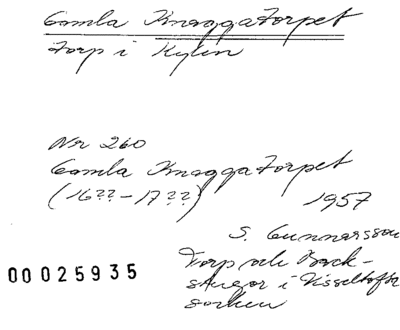 Gamla Knaggatorpet
Torp i Kylen
Nr 260
Gamla Knaggatorpet
(16?? - 17??) 1957
S. Gunnarsson
Torp och Back-
stugor i Visseltofta
socken
00025935